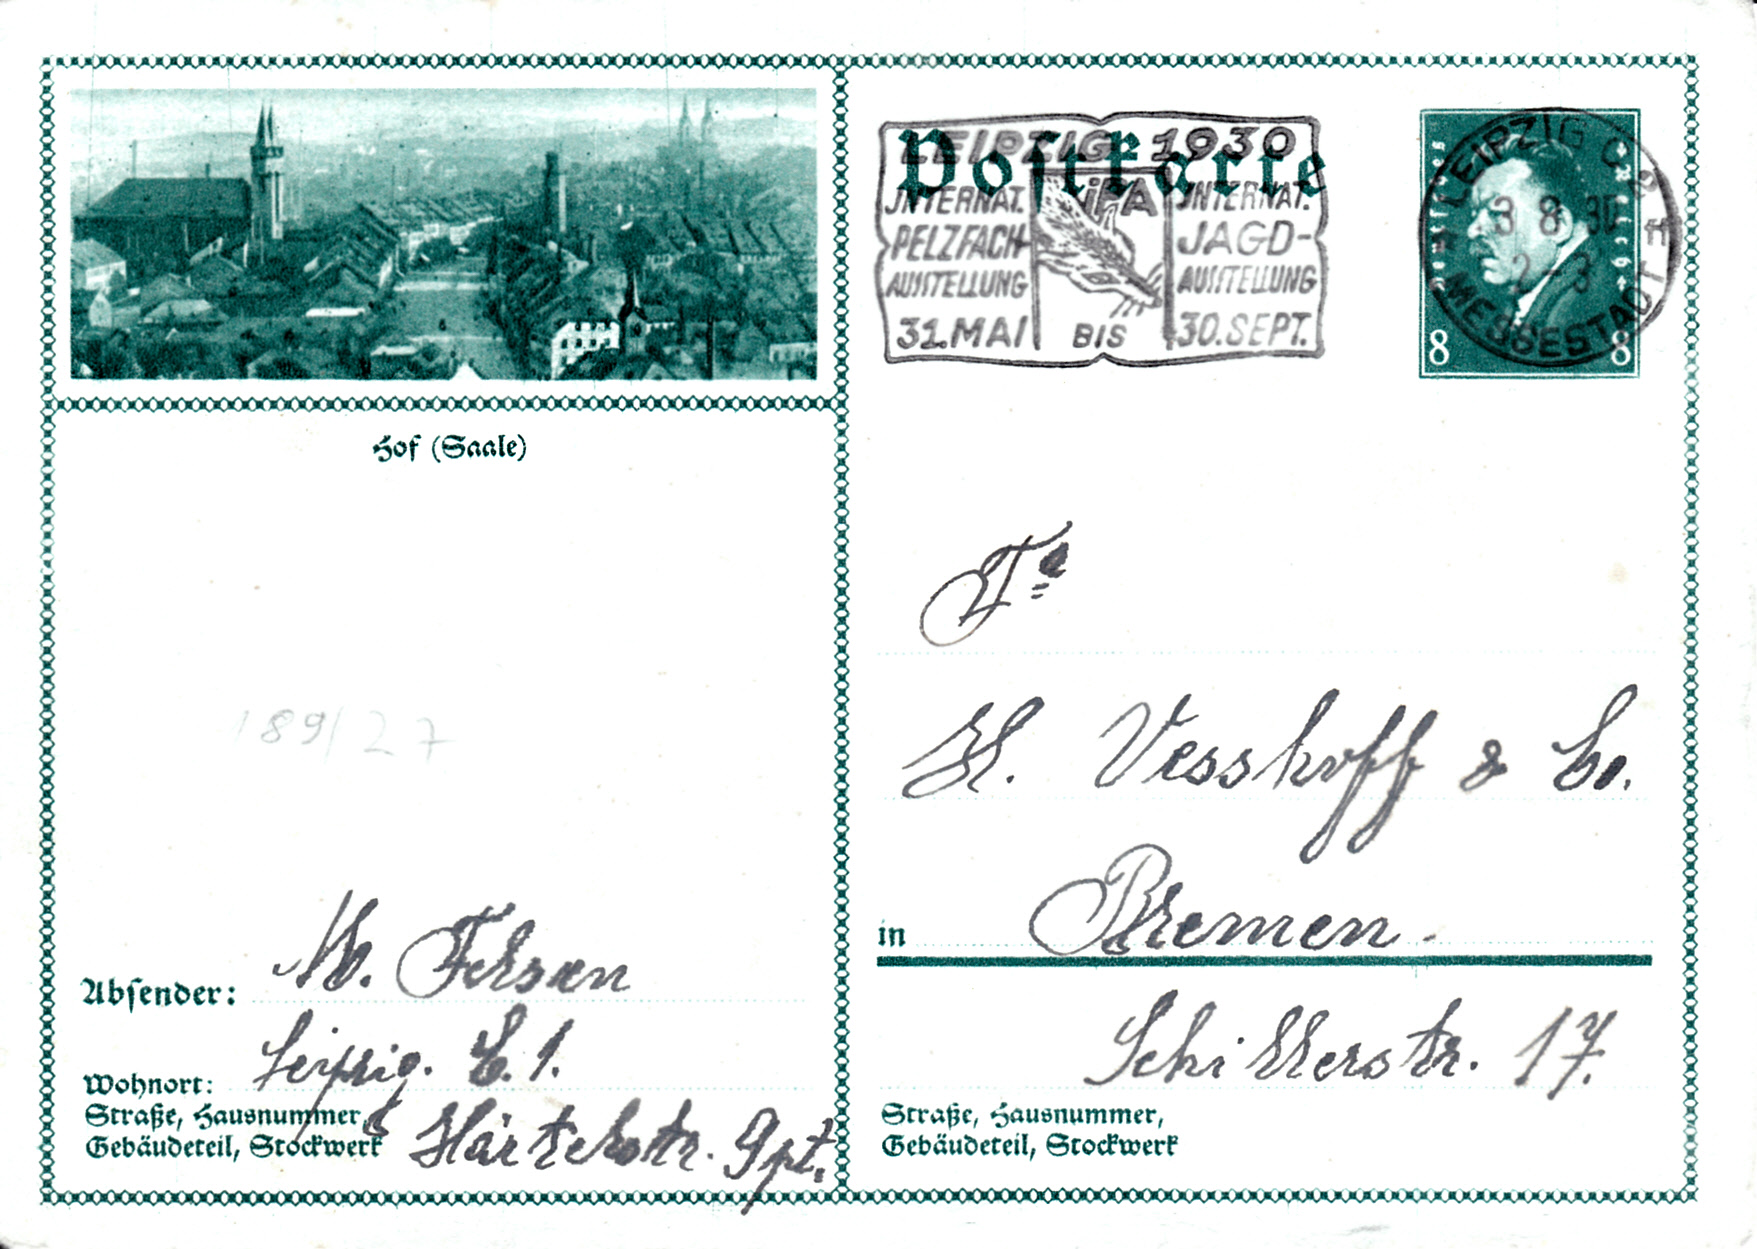 Hof (Saale)
189/27
Absender: W. Fehsen
Wohnort: Leipzig. C. 1.
Straße, Hausnummer,
Gebäudeteil, Stockwerk Härtelstr. 9 pt.
Postkarte
LEIPZIG 1930
INTERNAT. PELZFACH-AUSSTELLUNG
IPA
INTERNAT. JAGD-AUSSTELLUNG
31. MAI BIS 30. SEPT.
Deutsches Reich
LEIPZIG C 2
3 8 30
2-3
MESSESTADT
8 8
Fa
H. Vesshoff & Co.
in Bremen.
Schillerstr. 17.
Straße, Hausnummer,
Gebäudeteil, Stockwerk